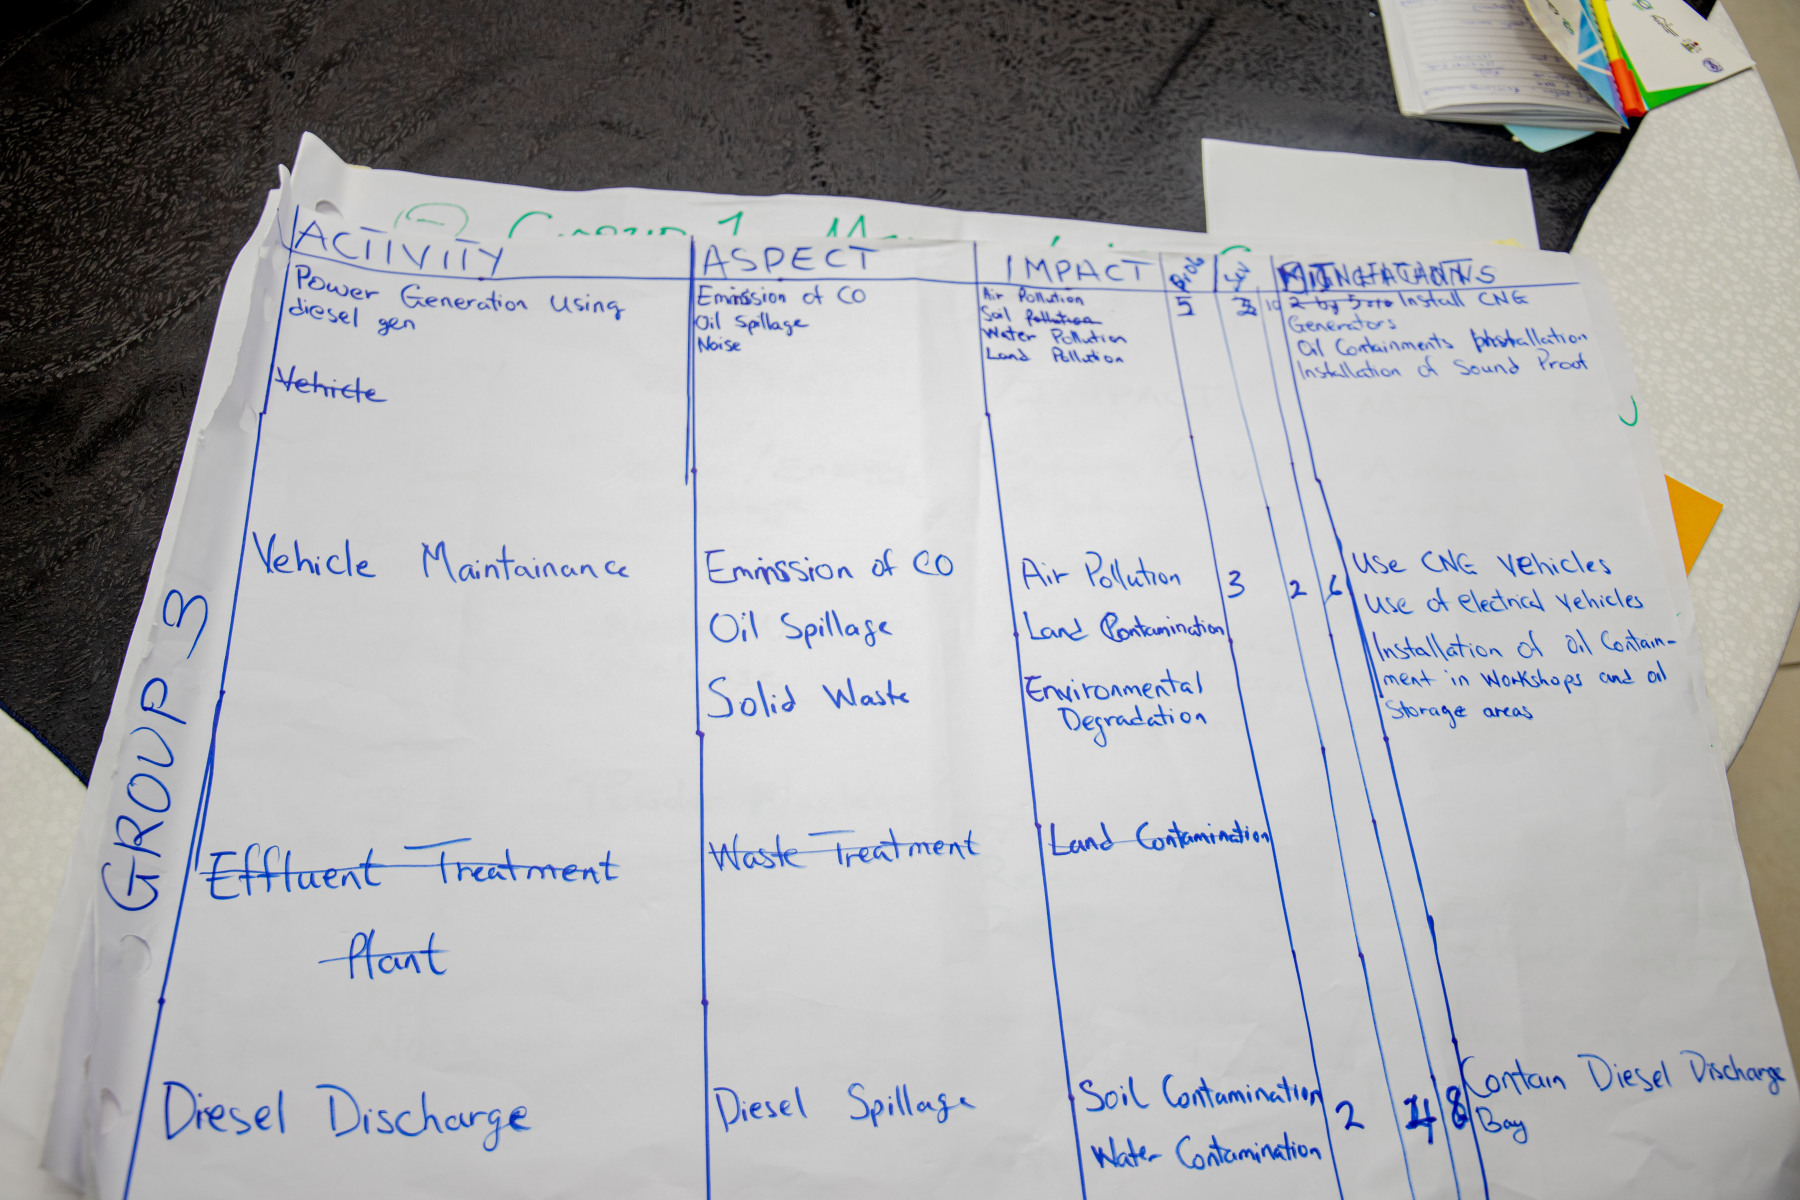 Group 1
GROUP 3
ACTIVITY ASPECT IMPACT Prob Sev
Power Generation Using
diesel gen
Vehicle
Emission of CO
Oil Spillage
Noise
Air Pollution
Soil Pollution
Water Pollution
Land Pollution
5 2 10
Install CNG
Generators
Oil Containments Installation
Installation of Sound Proof
Vehicle Maintainance
Emission of CO
Oil Spillage
Solid Waste
Air Pollution
Land Contamination
Environmental
Degradation
3 2 6
Use CNG Vehicles
Use of electrical Vehicles
Installation of Oil Contain-
ment in Workshops and oil
Storage areas
Effluent Treatment
Plant
Waste Treatment
Land Contamination
Diesel Discharge
Diesel Spillage
Soil Contamination
Water Contamination
2 4 8
Contain Diesel Discharge
Bay